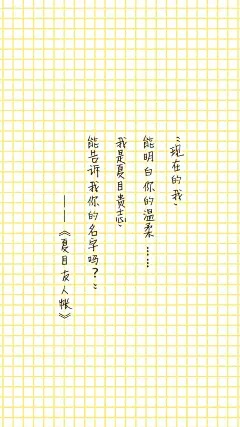 “现在的我，
能明白你的温柔……
我是夏目贵志，
能告诉我你的名字吗？”
——《夏目友人帐》